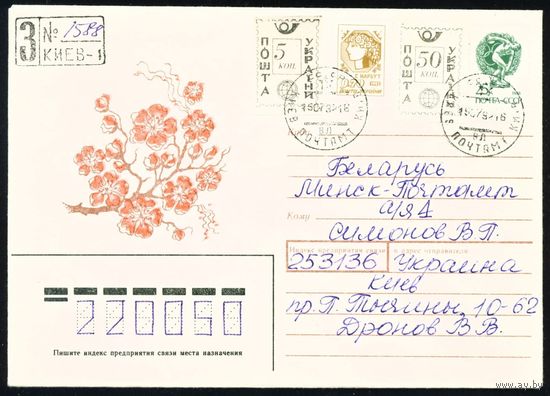 З № 1588
КИЕВ-1
ПОШТА 5 коп. УКРАЇНИ
ПОШТА 50 коп. УКРАЇНИ
ПОЧТА СССР
ПОЧТАМТ
Беларусь
Минск-Почтамт
а/я 4
Кому Симонов В.П.
Индекс предприятия связи и адрес отправителя
253136 Украина
Киев
пр. П. Тычины, 10-62
Дронов В.В.
220050
Пишите индекс предприятия связи места назначения
www.ay.by